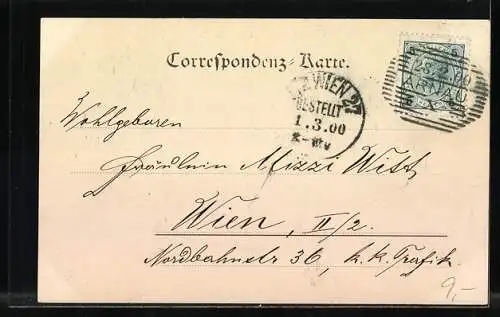 Correspondenz-Karte.
WIEN 2/7
BESTELLT
1.3.00
Wohlgeboren
Fräulein Mizzi Witt
Wien, II/2.
Nordbahnstr 36, k.k. Trafik.
9,-